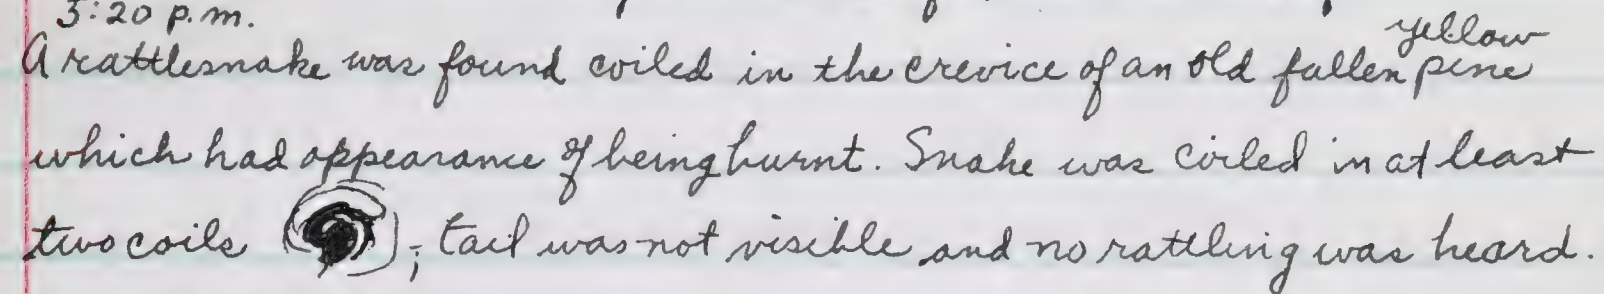 5:20 p.m.
A rattlesnake was found coiled in the crevice of an old fallen yellow pine
which had appearance of being burnt. Snake was coiled in at least
two coils ( ); tail was not visible and no rattling was heard.